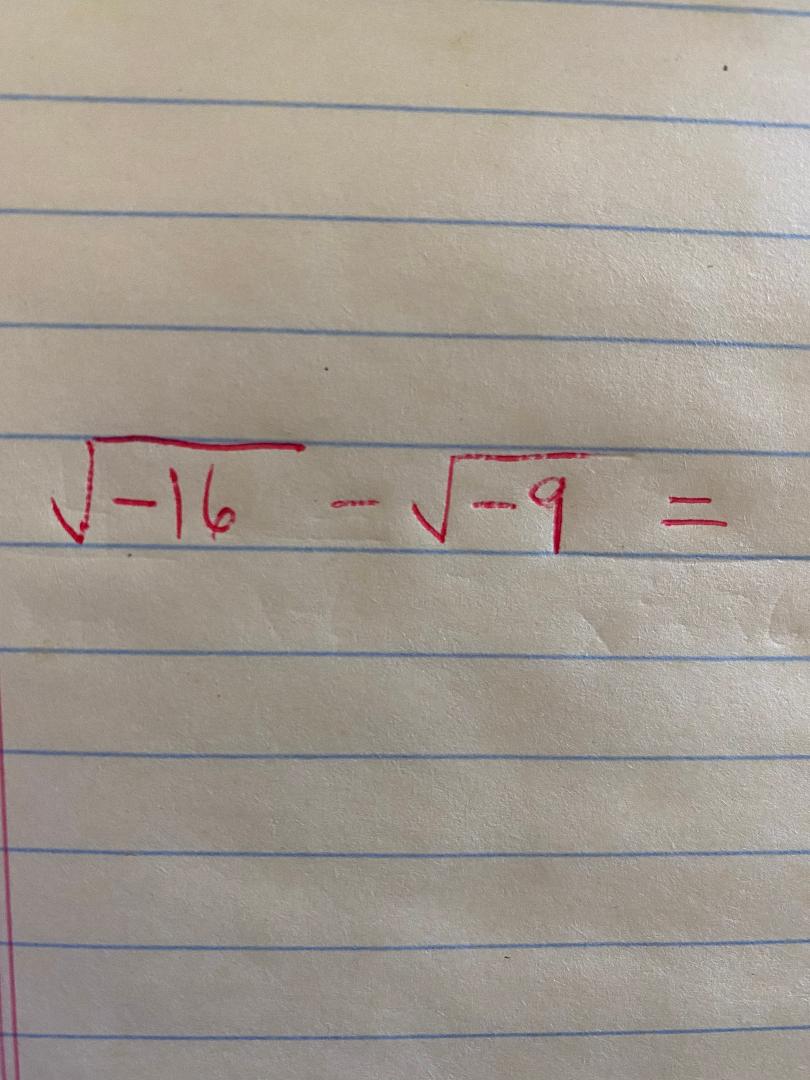 √-16 - √-9 =